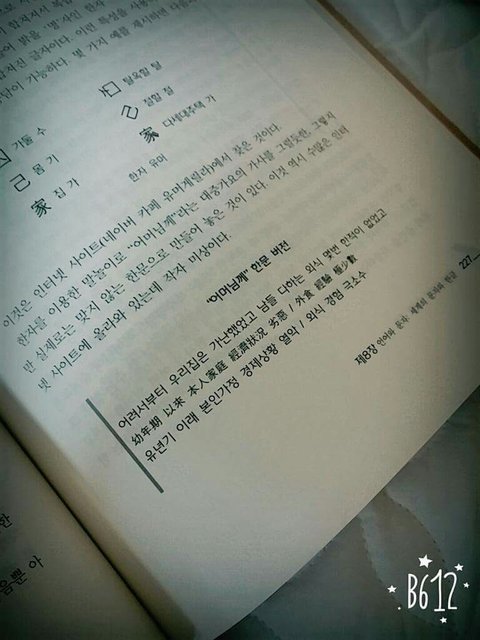 밝을
글자이다. 이런 특성을
가능하다. 몇 가지 예를 제시하면 다음
탈옥할 탈
가둘 수
접할 절
己 몸 기
家 다세대주택 가
家 집 가
한자 유머
이것은 인터넷 사이트(네이버 카페 유머게릴라)에서 찾은 것이다.
한자를 이용한 말놀이로 "어머님께"라는 대중가요의 가사를 그럴듯한, 그렇지
만 실제로는 맞지 않는 한문으로 만들어 놓은 것이 있다. 이것 역시 수많은 인터
넷 사이트에 올라와 있는데 작자 미상이다.
"어머님께" 한문 버전
어려서부터 우리집은 가난했었고 남들 다하는 외식 몇번 한적이 없었고
幼年期 以來 本人家庭 經濟狀況 劣惡 / 外食 經驗 極少數
유년기 이래 본인가정 경제상황 열악 / 외식 경험 극소수
제8장 언어와 문자: 세계의 문자와 한글 227
한
음뿐 아
B612